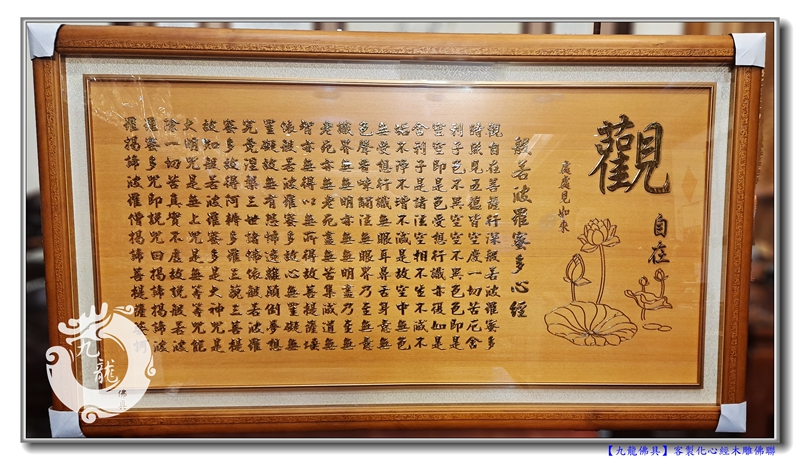 觀
自在
處處見如來
般若波羅蜜多心經
觀自在菩薩行深般若波羅蜜多
時照見五蘊皆空度一切苦厄舍
利子色不異空空不異色色即是
空空即是色受想行識亦復如是
舍利子是諸法空相不生不滅不
垢不淨不增不減是故空中無色
無受想行識無眼耳鼻舌身意無
色聲香味觸法無眼界乃至無意
識界無無明亦無無明盡乃至無
老死亦無老死盡無苦集滅道無
智亦無得以無所得故菩提薩埵
依般若波羅蜜多故心無罣礙無
罣礙故無有恐怖遠離顛倒夢想
究竟涅槃三世諸佛依般若波羅
蜜多故得阿耨多羅三藐三菩提
故知般若波羅蜜多是大神咒是
大明咒是無上咒是無等等咒能
除一切苦真實不虛故說般若波
羅蜜多咒即說咒曰揭諦揭諦波
羅揭諦波羅僧揭諦菩提薩婆訶
九龍
佛具
【九龍佛具】客製化心經木雕佛聯